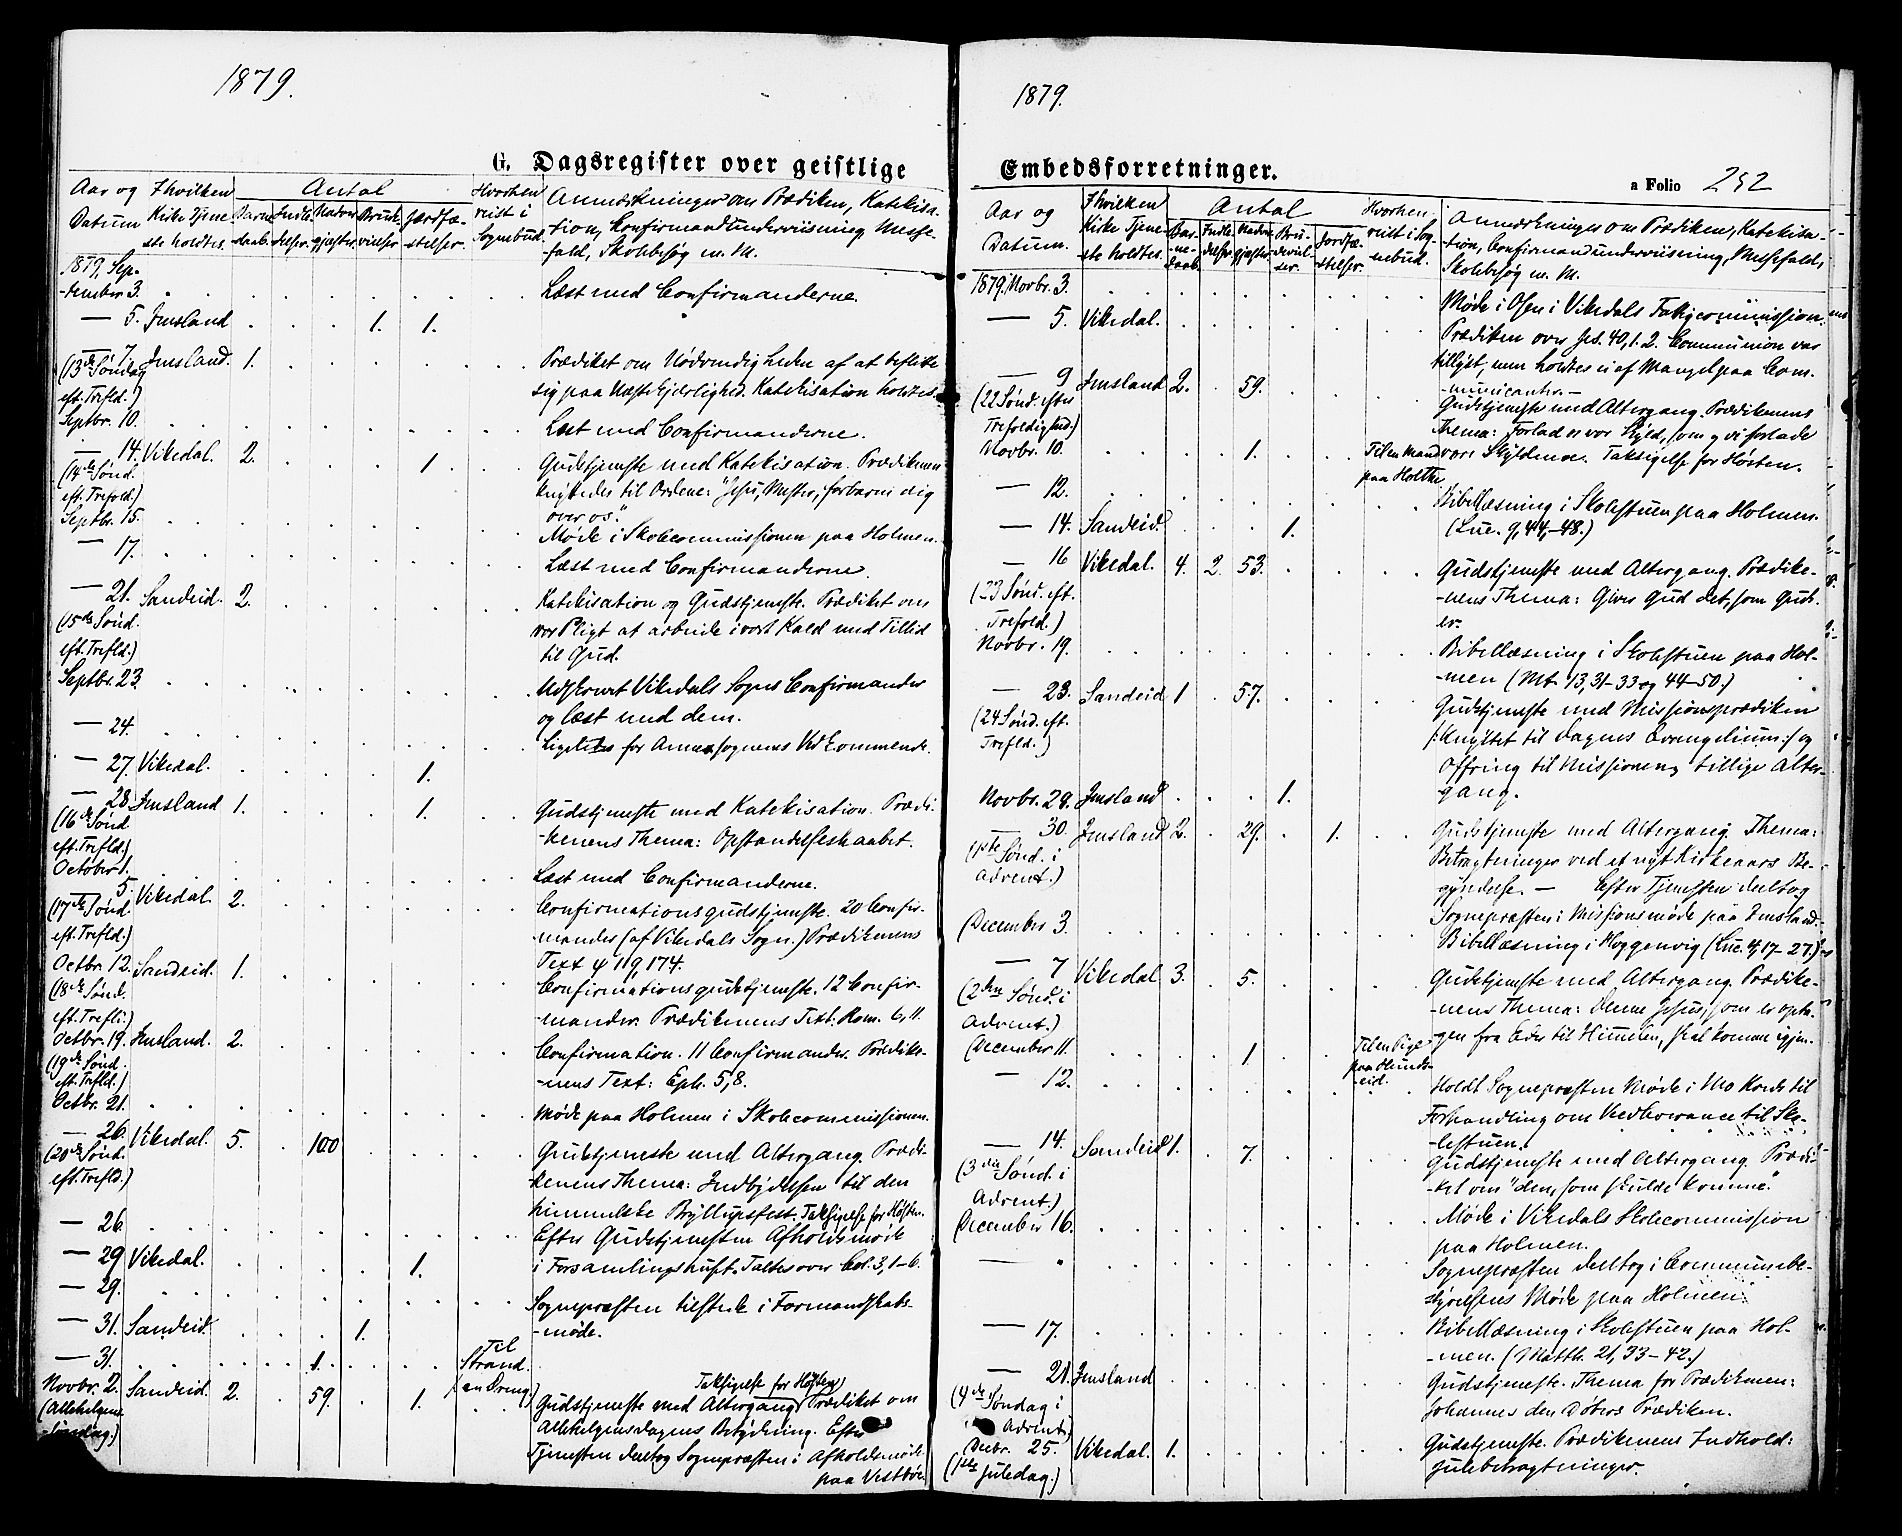 1879.
G. Dagsregister over geistlige
Aar og Datum
I hvilken Kirke Tjeneste holdtes.
Antal
Barnedaab.
Indledelser.
Nadvergjæster
Brudevielser
Jordfæstelser.
Hvorhen reist i Sognebud.
Anmærkninger om Prædiken, Katekisa-
tion, Confirmandundervisning, Messe-
fald, Skolebesøg m. M.
1879, Sep-
tember 3. Læst med Confirmanderne.
— 5. Imsland 1. 1.
— 7 Imsland. 1. Prædiket om Nødvendigheden af at beflitte
(13de Søndag sig paa Næstekjærlighed. Katekisation holdtes.
eft. Trefld.)
Septbr. 10. Læst med Confirmanderne.
— 14. Vikedal. 2. 1 Gudstjeneste med Katekisation. Prædikenen
(14de Sønd. knyttedes til Ordene: "Jesu, Mester, forbarm dig
eft. Trefold.) over os."
Septbr. 15. Møde i Skolecommissionen paa Holmen.
— 17. Læst med Confirmanderne.
— 21. Sandeid. 2. Katekisation og Gudstjeneste. Prædiket om
(15de Sønd. vor Pligt at arbeide i vort Kald med Tillid
eft. Trefld.) til Gud.
Septbr. 23. Udskrevet Vikedals Sogns Confirmander
og læst med dem.
— 24. Ligeledes for Annexsognenes Vedkommende.
— 27. Vikedal. 1.
— 28. Imsland 1. 1. Gudstjeneste med Katekisation. Prædi-
(16de Sønd -kenens Thema: Opstandelseshaabet.
eft. Trefld.)
October 1. Læst med Confirmanderne.
5. Vikedal 2. Confirmationsgudstjeneste. 20 Confir-
(17de Sønd. -mander (af Vikedals Sogn.) Prædikenens
eft. Trefld.) Text ψ 119, 174.
Octbr. 12. Sandeid. 1. Confirmationsgudstjeneste. 12 Confir-
(18de Sønd. -mander. Prædikenens Text: Rom. 6, 11.
eft. Trefl.)
Octbr. 19. Imsland. 2. Confirmation. 11 Confirmander. Prædike-
(19de Sønd. -nens Text: Eph. 5, 8.
eft. Trefld.)
Octbr. 21. Møde paa Holmen i Skolecommissionen.
— 26. Vikedal. 5. 100 Gudstjeneste med Altergang. Prædi-
(20de Sønd. -kenens Thema: Indbydelsen til den
eft. Trefld.) himmelske Bryllupsfest. Taksigelse for Høsten.
— 26. Efter Gudstjenesten Afholdsmøde
— 29 Vikedal. 1. i Forsamlingshuset. Taltes over Col. 3, 1-6.
— 29. Sognepræsten tilstede i Formandskabs-
-møde.
— 31. Sandeid. 1.
— 31. 1. Til Strand. (en Dreng.)
Novbr. 2. Sandeid. 2. 59. 1. Gudstjeneste med Altergang (Taksigelse for Høsten) Prædiket om
(Allehelgens- Allehelgensdagens Betydning. Efter
-Søndag.) Tjenesten deltog Sognepræsten i Afholdsmøde
paa Vestbøe
1879.
Embedsforretninger.
a Folio 252
Aar og Datum.
I hvilken Kirke Tjeneste holdtes.
Antal
Barnedaab.
Indledelser.
Nadvergjæster.
Brudevielser.
Jordfæstelser.
Hvorhen reist i Sognebud.
Anmærkninger om Prædiken, Katekisa-
tion, Confirmandundervisning, Messefald,
Skolebesøg m. M.
1879. Novbr. 3. Møde i Ølen i Vikedals Fatigcommission.
— 5. Vikedal. Prædiken over Jes. 40, 1. 2. Communion var
tillyst, men holdtes ei af Mangel paa Com-
-municanter.—
— 9 Imsland 2. 59. Gudstjeneste med Altergang. Prædikenens
(22 Sønd. efter Thema: Forlad os vor Skyld, som og vi forlade
Trefoldighed.) vore Skyldnere. Taksigelse for Høsten.
Novbr. 10. 1. Til en Mand paa Holthe
— 12. Bibellæsning i Skolestuen paa Holmen.
(Luc. 9, 44-48.)
— 14. Sandeid. 1.
— 16 Vikedal. 4. 2. 53. Gudstjeneste med Altergang. Prædike-
(23 Sønd. eft. -nens Thema: Giver Gud det, som Guds
Trefold.) er.
Novbr. 19. Bibellæsning i Skolestuen paa Hol-
-men (Mt. 13, 31-33 og 44-50.)
— 23. Sandeid 1 57. Gudstjeneste med Missionsprædiken
(24 Sønd. eft. /: knyttet til Dagens Evangelium :/ og
Trefld.) Offring til Missionen, tillige Alter-
gang.
Novbr. 28. Imsland 1.
30. Imsland 2. 29. 1. Gudstjeneste med Altergang. Thema:
(1ste Sønd. i Betragtninger ved et nyt Kirkeaars Be-
Advent.) gyndelse. — Efter Tjenesten deltog
Sognepræsten i Missionsmøde paa Imsland.
(December 3. Bibellæsning i Hoggenvig (Luc. 4, 17-27.)
— 7 Vikedal 3. 5. Gudstjeneste med Altergang. Prædike-
(2den Sønd. i -nens Thema: Denne Jesus, som er opta-
Advent.) gen fra Eder til Himmelen, skal komme igjen.
(December 11. 1. Til en Pige paa Hunds-
-eid.
— 12. Holdt Sognepræsten Møde i Mo Kreds til
Forhandling om Vedleverance til Sko-
-lestuen.
— 14. Sandeid 1. 7. Gudstjeneste med Altergang. Prædi-
(3die Sønd. i -ket om "den, som skulde komme."
Advent.)
(December 16. Møde i Vikedals Skolecommission
paa Holmen.
— " Sognepræsten deltog i Communebe-
styrelsens Møde paa Holmen.
— 17. Bibellæsning i Skolestuen paa Hol-
-men. (Matth. 21, 33-42.)
— 21. Imsland Gudstjeneste. Thema for Prædikenen:
(4de Søndag i Johannes den Døbers Prædiken.
Advent)
Decbr. 25. Vikedal. 1. Gudstjeneste. Prædikenens Indhold:
(1ste Juledag.) Julebetragtninger.